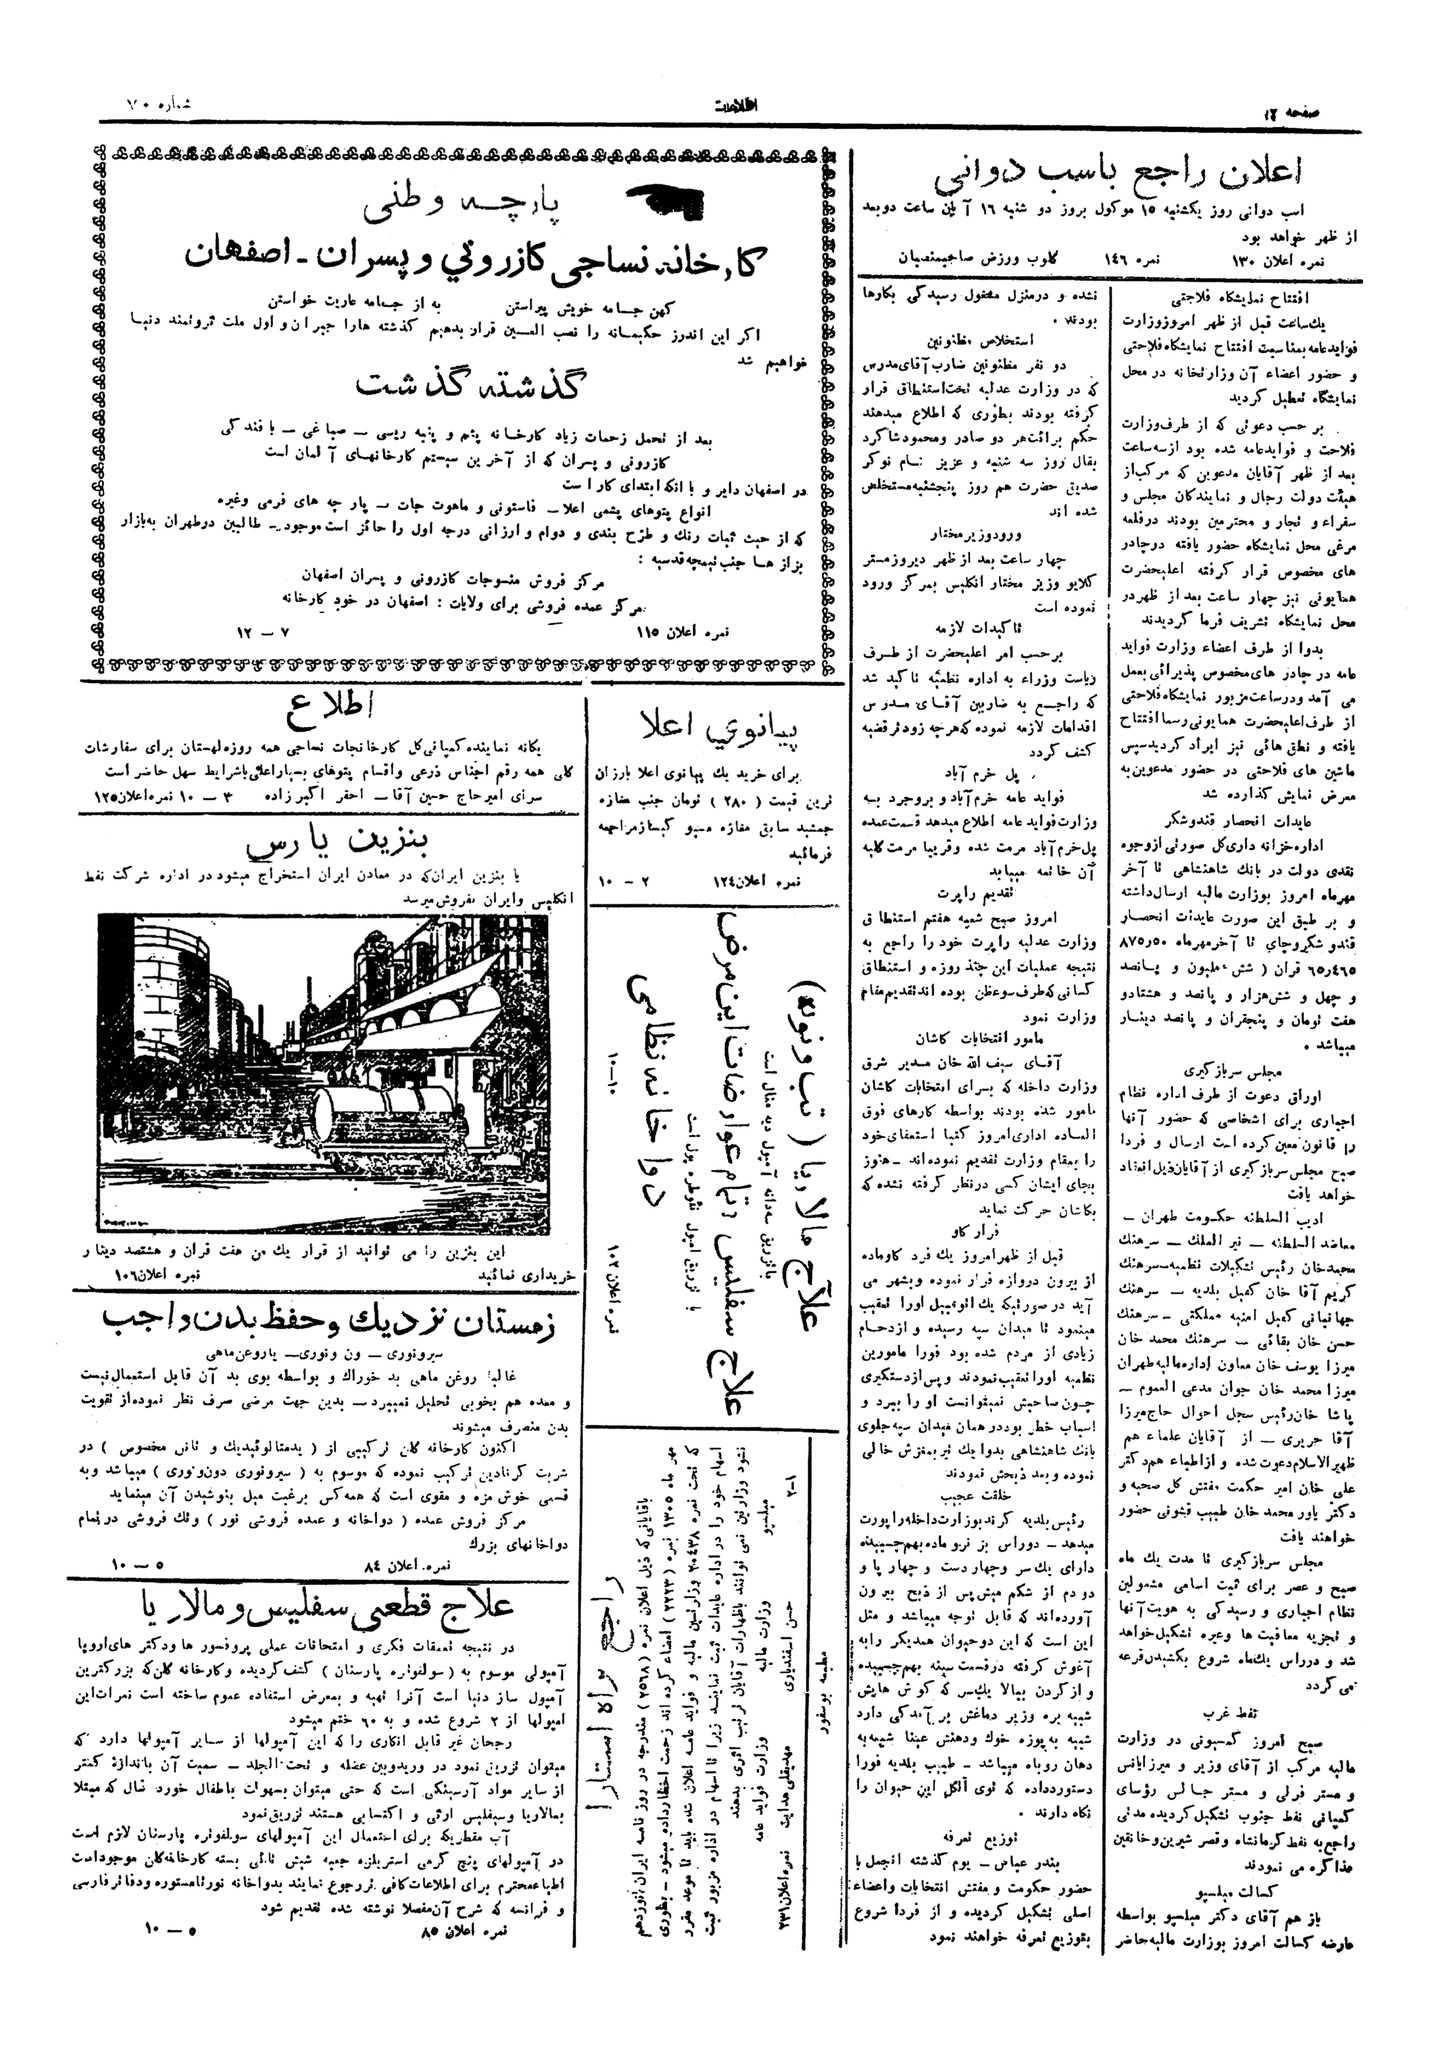 صفحه ۴
اطلاعات
شماره ۷۰
اعلان راجع باسب دوانی
اسب دوانی روز یکشنبه ۱۵ موکول بروز دو شنبه ۱۶ آبان ساعت دو بعد
از ظهر خواهد بود
نمره اعلان ۱۳۰ نمره ۱۴۶ کلوب ورزش صاحبمنصبان
افتتاح نمایشگاه فلاحتی
یکساعت قبل از ظهر امروز وزارت
فواید عامه بمناسبت افتتاح نمایشگاه فلاحتی
و حضور اعضاء آن وزارتخانه در محل
نمایشگاه تعطیل گردید
بر حسب دعوتی که از طرف وزارت
فلاحت و فواید عامه شده بود از سه ساعت
بعد از ظهر آقایان مدعوین که مرکب از
هیئت دولت رجال و نمایندگان مجلس و
سفراء و تجار و محترمین بودند در قلعه
مرغی محل نمایشگاه حضور یافته در چادر
های مخصوص قرار گرفته اعلیحضرت
همایونی نیز چهار ساعت بعد از ظهر در
محل نمایشگاه تشریف فرما گردیدند
بدوا از طرف اعضاء وزارت فواید
عامه در چادر های مخصوص پذیرائی بعمل
می آمد و در ساعت مزبور نمایشگاه فلاحتی
از طرف اعلیحضرت همایونی رسما افتتاح
یافته و نطق هائی نیز ایراد گردید سپس
ماشین های فلاحتی در حضور مدعوین به
معرض نمایش گذارده شد
عایدات انحصار قند و شکر
اداره خزانه داری کل صورتی از وجوه
نقدی دولت در بانک شاهنشاهی تا آخر
مهرماه امروز بوزارت مالیه ارسال داشته
و بر طبق این صورت عایدات انحصار
قند و شکر و چای تا آخر مهر ماه ۸۷۵ر۵۰
۶۵ر۴۶۵ قران ( شش ملیون و پانصد
و چهل و شش هزار و پانصد و هشتاد و
هفت تومان و پنجقران و پانصد دینار
میباشد .
مجلس سرباز گیری
اوراق دعوت از طرف اداره نظام
اجباری برای اشخاصی که حضور آنها
را قانون معین کرده است ارسال و فردا
صبح مجلس سربازگیری از آقایان ذیل انعقاد
خواهد یافت
ادیب السلطنه حکومت طهران –
معاضد السلطنه – نیر الملک – سرهنگ
محمد خان رئیس تشکیلات نظمیه – سرهنگ
کریم آقا خان کفیل بلدیه – سرهنگ
جهانبانی کفیل امنیه مملکتی – سرهنگ
حسن خان بقائی – سرهنگ محمد خان
میرزا یوسف خان معاون اداره مالیه طهران
میرزا محمد خان جوان مدعی العموم –
پاشا خان رئیس سجل احوال حاج میرزا
آقا حریری – از آقایان علماء هم
ظهیر الاسلام دعوت شده و از اطباء هم دکتر
علی خان امیر حکمت مفتش کل صحیه و
دکتر یاور محمد خان طبیب قشونی حضور
خواهند یافت
مجلس سرباز گیری تا مدت یک ماه
صبح و عصر برای ثبت اسامی مشمولین
نظام اجباری و رسیدگی به هویت آنها
و تجزیه معافیت ها وغیره تشکیل خواهد
شد و در راس یک ماه شروع بکشیدن قرعه
می گردد
نفط غرب
صبح امروز کمسیونی در وزارت
مالیه مرکب از آقای وزیر و میرزا یانس
و مستر فرلی و مستر جاکس رؤسای
کمپانی نفط جنوب تشکیل گردیده مدتی
راجع به نفط کرمانشاه و قصر شیرین و خانقین
مذاکره می نمودند
کسالت میلسپو
باز هم آقای دکتر میلسپو بواسطه
عارضه کسالت امروز بوزارت مالیه حاضر
نشده و در منزل مشغول رسیدگی بکارها
بودند .
استخلاص مظنونین
دو نفر مظنونین ضارب آقای مدرس
که در وزارت عدلیه تحت استنطاق قرار
گرفته بودند بطوری که اطلاع میدهند
حکم برائت هر دو صادر و محمود شاگرد
بقال روز سه شنبه و عزیز نام نوکر
صدیق حضرت هم روز پنجشنبه مستخلص
شده اند
ورود وزیر مختار
چهار ساعت بعد از ظهر دیروز مستر
کلایو وزیر مختار انگلیس بمرکز ورود
نموده است
تاکیدات لازمه
بر حسب امر اعلیحضرت از طرف
ریاست وزراء به اداره نظمیه تاکید شد
که راجع به ضاربین آقای مدرس
اقدامات لازمه نموده که هر چه زودتر قضیه
کشف گردد
پل خرم آباد
فواید عامه خرم آباد و بروجرد به
وزارت فواید عامه اطلاع میدهد قسمت عمده
پل خرم آباد مرمت شده و قریبا مرمت کلیه
آن خاتمه مییابد
تقدیم راپرت
امروز صبح شعبه هفتم استنطاق
وزارت عدلیه راپرت خود را راجع به
نتیجه عملیات این چند روزه و استنطاق
کسانی که طرف سوءظن بوده اند تقدیم مقام
وزارت نمود
مامور انتخابات کاشان
آقای سیف الله خان مدیر شرق
وزارت داخله که برای انتخابات کاشان
مامور شده بودند بواسطه کارهای فوق
العاده اداری امروز کتبا استعفای خود
را بمقام وزارت تقدیم نموده اند – هنوز
بجای ایشان کسی در نظر گرفته نشده که
بکاشان حرکت نماید
فرار گاو
قبل از ظهر امروز یک فرد گاو ماده
از بیرون دروازه فرار نموده و بشهر می
آید در صورتیکه یک اتومبیل او را تعقیب
مینمود تا میدان سپه رسیده و ازدحام
زیادی از مردم شده بود فورا مامورین
نظمیه او را تعقیب نمودند و پس از دستگیری
چون صاحبش نمیتوانست او را ببرد و
اسباب خطر بود در همان میدان سپه جلوی
بانک شاهنشاهی بدوا یک تیر بمغزش خالی
نموده و بعد ذبحش نمودند
خلقت عجیب
رئیس بلدیه کرند بوزارت داخله راپورت
میدهد – دوراس بز نر و ماده بهم چسبیده
دارای یک سر و چهار دست و چهار پا و
دو دم از شکم میش پس از ذبح بیرون
آورده اند که قابل توجه میباشد و مثل
این است که این دو حیوان همدیگر را به
آغوش گرفته در قسمت سینه بهم چسبیده
و از گردن ببالا یک سر که گوش هایش
شبیه بره و زیر دماغش بر آمدگی دارد
شبیه به پوزه خوک و دهنش عینا شبیه به
دهان روباه میباشد – طبیب بلدیه فورا
دستور داده که توی الکل این حیوان را
نگاه دارند .
توزیع تعرفه
بندر عباس – یوم گذشته انجمن با
حضور حکومت و مفتش انتخابات و اعضاء
اصلی تشکیل گردیده و از فردا شروع
بتوزیع تعرفه خواهند نمود
پارچه وطنی
کارخانه نساجی کازرونی و پسران – اصفهان
کهن جامه خویش پیراستن به از جامه عاریت خواستن
اگر این اندرز حکیمانه را نصب العین قرار بدهیم گذشته ها را جبران و اول ملت ثروتمند دنیا
خواهیم شد
گذشته گذشت
بعد از تحمل زحمات زیاد کارخانه پشم و پنبه ریسی – صباغی – بافندگی
کازرونی و پسران که از آخرین سیستم کارخانهای آلمان است
در اصفهان دایر و با آنکه ابتدای کار است
انواع پتوهای پشمی اعلا – فاستونی و ماهوت جات – پارچه های فرمی وغیره
که از حیث ثبات رنگ و طرح بندی و دوام و ارزانی درجه اول را حائز است موجود – طالبین در طهران به بازار
بزاز ها جنب تیمچه قدسیه :
مرکز فروش منسوجات کازرونی و پسران اصفهان
مرکز عمده فروشی برای ولایات : اصفهان در خود کارخانه
نمره اعلان ۱۱۵ ۷ – ۱۲
پیانوی اعلا
برای خرید یک پیانوی اعلا بارزان
ترین قیمت ( ۲۸۰ ) تومان جنب مغازه
جمشید سابق مغازه مسیو کیستاز مراجعه
فرمائید
نمره اعلان ۱۲۴ ۲ – ۱۰
اطلاع
یگانه نماینده کمپانی کل کارخانجات نساجی همه روزه لهستان برای سفارشات
کلی همه رقم اجناس ذرعی و اقسام پتوهای بسیار اعلی باشرایط سهل حاضر است
سرای امیر حاج حسین آقا – احقر اکبر زاده ۳ – ۱۰ نمره اعلان ۱۲۵
بنزین پارس
یا بنزین ایران که در معادن ایران استخراج میشود در اداره شرکت نفط
انگلیس و ایران بفروش میرسد
این بنزین را می توانید از قرار یک من هفت قران و هشتصد دینار
خریداری نمائید نمره اعلان ۱۰۶
علاج مالاریا ( تب و نوبه )
با تزریق سه دانه آمپول دبه مثال است
علاج سفلیس و تمام عوارضات این مرض
با تزریق آمپول نئوطره پول است
دواخانه نظامی
۱۰–۱۰ نمره اعلان ۱۰۲
زمستان نزدیک و حفظ بدن واجب
سیرونوری – ون ونوری – یاروغن ماهی
غالبا روغن ماهی بد خوراک و بواسطه بوی بد آن قابل استعمال نیست
و معده هم بخوبی تحلیل نمیبرد – بدین جهت مرضی صرف نظر نموده از تقویت
بدن منصرف میشوند
اکنون کارخانه گلن ترکیبی از ( یدمتالوئیدیک و تانی مخصوص ) در
شربت گرنادین ترکیب نموده که موسوم به ( سیرونوری دون ونوری ) میباشد و به
قسمی خوش مزه و مقوی است که همه کس برغبت میل بنوشیدن آن مینماید
مرکز فروش عمده ( دواخانه و عمده فروشی نور ) وتک فروشی در تمام
دواخانهای بزرگ
نمره اعلان ۸۴ ۵ – ۱۰
علاج قطعی سفلیس و مالاریا
در نتیجه تعمقات فکری و امتحانات عملی پروفسور ها و دکتر های اروپا
آمپولی موسوم به ( سولفوتره پارسنان ) کشف گردیده و کارخانه گلن که بزرگترین
آمپول ساز دنیا است آنرا تهیه و بمعرض استفاده عموم ساخته است نمرات این
امپولها از ۲ شروع شده و به ۶۰ ختم میشود
رجحان غیر قابل انکاری را که این آمپولها از سایر آمپولها دارد که
میتوان تزریق نمود در وریدوبین عضله و تحت الجلد – سمیت آن باندازه کمتر
از سایر مواد آرسنیکی است که حتی میتوان بسهولت باطفال خورد سال که مبتلا
بمالاریا و سیفلیس ارثی و اکتسابی هستند تزریق نمود
آب مقطریکه برای استعمال این آمپولهای سولفوتره پارسنان لازم است
در آمپولهای پنج گرمی استریلزه جعبه شیش تائی بسته کارخانه گلن موجود است
اطباء محترم برای اطلاعات کافی تر رجوع نمایند بدواخانه نور تا مستوره و دفاتر فارسی
و فرانسه که شرح آن مفصلا نوشته شده تقدیم شود
نمره اعلان ۸۵ ۵ – ۱۰
راجع براه استارا
باقایانی که ذیل اعلان نمره (۲۵۶۸) مندرجه در روز نامه ایران نوزدهم
مهر ماه ۱۳۰۵ نمره (۲۲۲۳) امضاء کرده اند زحمت اخطار داده میشود – بطوری
که تحت نمره ۲۰۴۳۸ وزارتین مالیه و فواید عامه اعلان شده باید تا موعد مقرر
اسهام خود را در اداره عایدات ثبت نمایند زیرا تا اسهام در اداره مزبور ثبت
نشود وزارتین نمی توانند باظهارات آقایان ترتیب اثری بدهند
میلسپو وزارت مالیه وزارت فواید عامه
۱–۲ حسن اسفندیاری مهدیقلی هدایت نمره اعلان ۲۳۱
مطبعه بوسفور